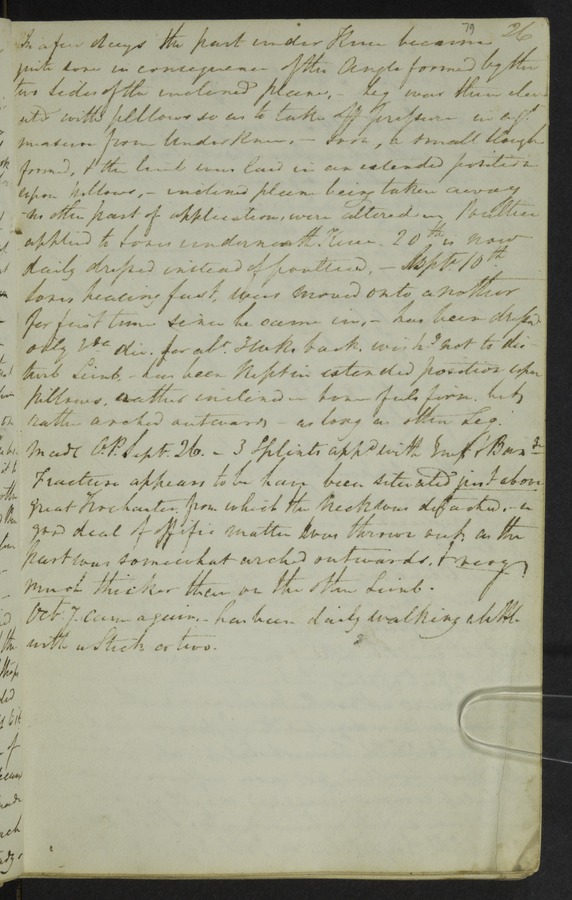 79 26
In a few days the part under Knee became
quite sore in consequence of the Angle formed by the
two sides of the inclined plane, - leg was then elev
ated with pillows so as to take off pressure in a gt
measure from under Knee, - Soon, a small Slough
formed, & the limb was laid in an extended position
upon pillows, - inclined plane being taken away
- no other part of application, were altered, Poultice
applied to Sores underneath Knee. 20th is now
daily dressed instead of poulticed, - Sept 10th
Sores healing fast, was moved onto another
for first time since he came in, - has been dressed
only for back, wish'd not to dis-
turb Limb. - has been Kept in extended position upon
Pillows, rather inclined
rather arched outwards - as long as other Leg.
made O.P. Sept. 26. - 3 Splints appd with
Fracture appears to have been situated just above
great Trochanter, from which the Neck was detached, - a
good deal of ossific matter was thrown out, as the
part was somewhat arched outwards, & very
much thicker than on the other Limb. -
Oct. 7. came again, - has been daily walking
with a Stick or two.